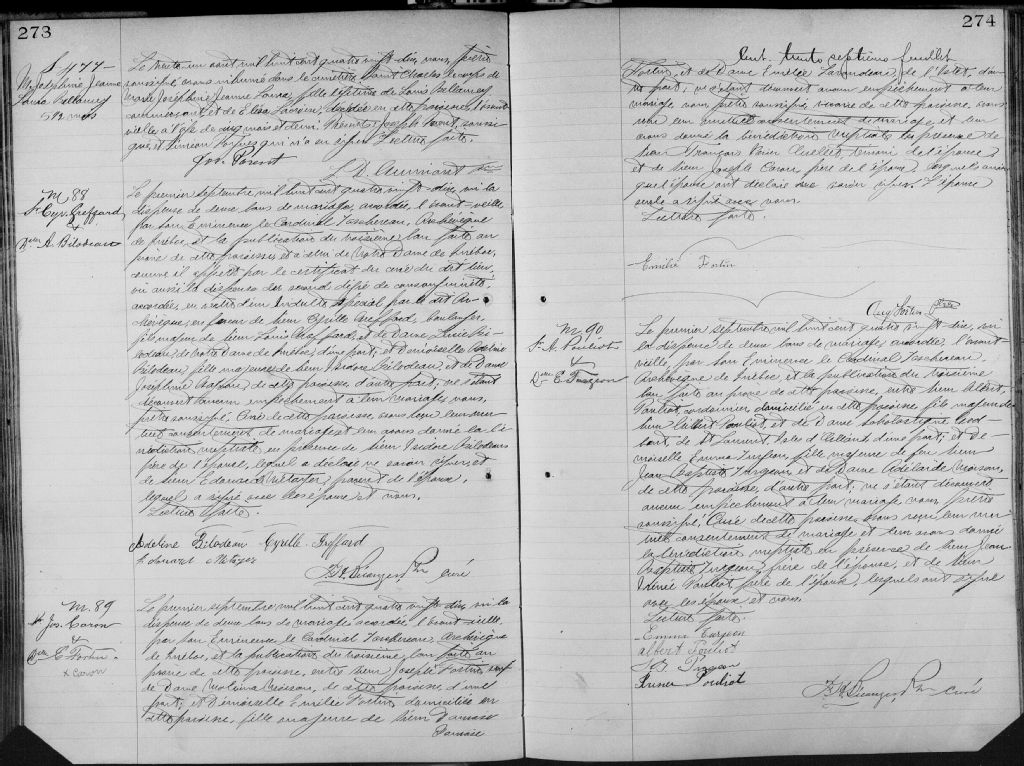 273
S. 477
M. Joséphine Jeanne
Louisa Bellamey
5 1/2 mois
Le trente-un août mil huit cent quatre vingt dix, nous, prêtre
soussigné avons inhumé dans le cimetière Saint Charles le corps de
Marie Joséphine Jeanne Louisa, fille légitime de Louis Bellamey
commerçant et de Eliza Lavoie, décédée en cette paroisse, l'avant-
veille à l'âge de cinq mois et demi. Présents Joseph Parent, soussi-
gné, et Siméon qui n'a su signer. Lecture faite.
Jos. Parent
L. D. Aumont Ptre
M. 88
Cyr. Greffard
&
Dlle A. Bilodeau
Le premier septembre mil huit cent quatre vingt-dix, vu la
dispense de deux bans de mariage accordée l'avant-veille
par Son Eminence le Cardinal Taschereau, Archévêque
de Québec, et la publication du troisième ban faite au
prône de cette paroisse et à celui de Notre Dame de Québec,
comme il appert par le certificat du curé du dit lieu,
vu aussi la dispense du second degré de consanguinité
accordée, en vertu d'un Indult Spécial par le dit Ar-
chévêque, en faveur de Sieur Cyrille Greffard, boulanger,
fils majeur de Sieur Louis Greffard, et de Dame Luce Bi-
lodeau, de Notre Dame de Québec, d'une part; et Demoiselle Adeline
Bilodeau, fille majeure de Sieur Isidore Bilodeau, et de Dame
Joséphine de cette paroisse, d'autre part; ne s'étant
découvert aucun empêchement à leur mariage, nous,
prêtre soussigné, Curé de cette paroisse, avons reçu leur mu-
tuel consentement de mariage et leur avons donné la bé-
nédiction nuptiale en présence de Sieur Isidore Bilodeau
père de l'épouse, lequel a déclaré ne savoir signer, et
de Sieur Edouard Métayer, parent de l'épouse,
lequel a signé avec les époux et nous.
Lecture faite.
Adeline Bilodeau Cyrille Greffard
Edouard Métayer
F. H. Bélanger Ptre Curé
M. 89
Jos. Caron
&
Dlle E. Fortin
x Caron
Le premier septembre mil huit cent quatre vingt-dix, vu la
dispense de deux bans de mariage accordée l'avant-veille,
par Son Eminence le Cardinal Taschereau, Archévêque
de Québec, et la publication du troisième ban faite au
prône de cette paroisse, entre Sieur Joseph Fortin
de Dame de cette paroisse, d'une
part; et Demoiselle Emélie Fortin domiciliée en
cette paroisse, fille majeure de Sieur Damase
Damase
274
Cent trente septième feuillet
Fortin, et de Dame Emélie de l'Islet, d'au-
tre part; ne s'étant découvert aucun empêchement à leur
mariage, nous prêtre soussigné, vicaire de cette paroisse, avons
reçu leur mutuel consentement de mariage, et leur
avons donné la bénédiction nuptiale en présence de
Sieur François Xavier témoin de l'épouse,
et de Sieur Joseph Caron père de l'époux, lesquels ainsi
que l'époux ont déclaré ne savoir signer. L'épouse
seule a signé avec nous.
Lecture faite.
Emélie Fortin
Aug. Fortin Ptre
M. 90
F. A. Pouliot
&
Dlle E. Turgeon
Le premier septembre mil huit cent quatre vingt-dix, vu
la dispense de deux bans de mariage accordée, l'avant-
veille, par Son Eminence le Cardinal Taschereau,
Archévêque de Québec, et la publication du troisième
ban faite au prône de cette paroisse, entre Sieur Albert
Pouliot, cordonnier, domicilié en cette paroisse, fils majeur de
Sieur Albert Pouliot, et de Dame Scholastique God-
bout, de St Laurent, Isle d'Orléans d'une part; et De-
moiselle Emma Turgeon, fille majeure de feu Sieur
Jean Baptiste Turgeon, et de Dame Adélaïde
de cette Paroisse, d'autre part; ne s'étant découvert
aucun empêchement à leur mariage, nous prêtre
soussigné, Curé de cette paroisse, avons reçu leur mu-
tuel consentement de mariage et leur avons donné
la bénédiction nuptiale en présence de Sieur Jean
Baptiste Turgeon, frère de l'épouse, et de Sieur
Pouliot frère de l'époux, lesquels ont signé
avec les époux et nous.
Lecture faite.
Emma Turgeon
Albert Pouliot
J. B. Turgeon
Pouliot
F. H. Bélanger Ptre Curé